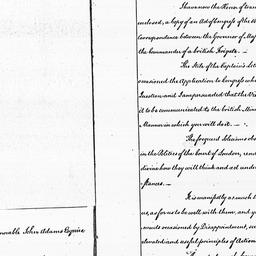 I have now the Honor of tran
enclosed, a Copy of an Act of Congress of the
Correspondence between the Governor of
the Commander of a british Frigate. —
The Stile of the Captain's Let
occasioned the Application to Congress wh
Sanction and I am persuaded that the Vi
it to be communicated to the british Min
Manner in which you will do it. —
The frequent
in the Politics of the Court of London, rend
divine how they will think and act under
stances. —
It is manifestly as much t
us, as for us to be well with them, and y
sults occasioned by Disappointment, su
and useful principles of Action
onorable John Adams Esquire